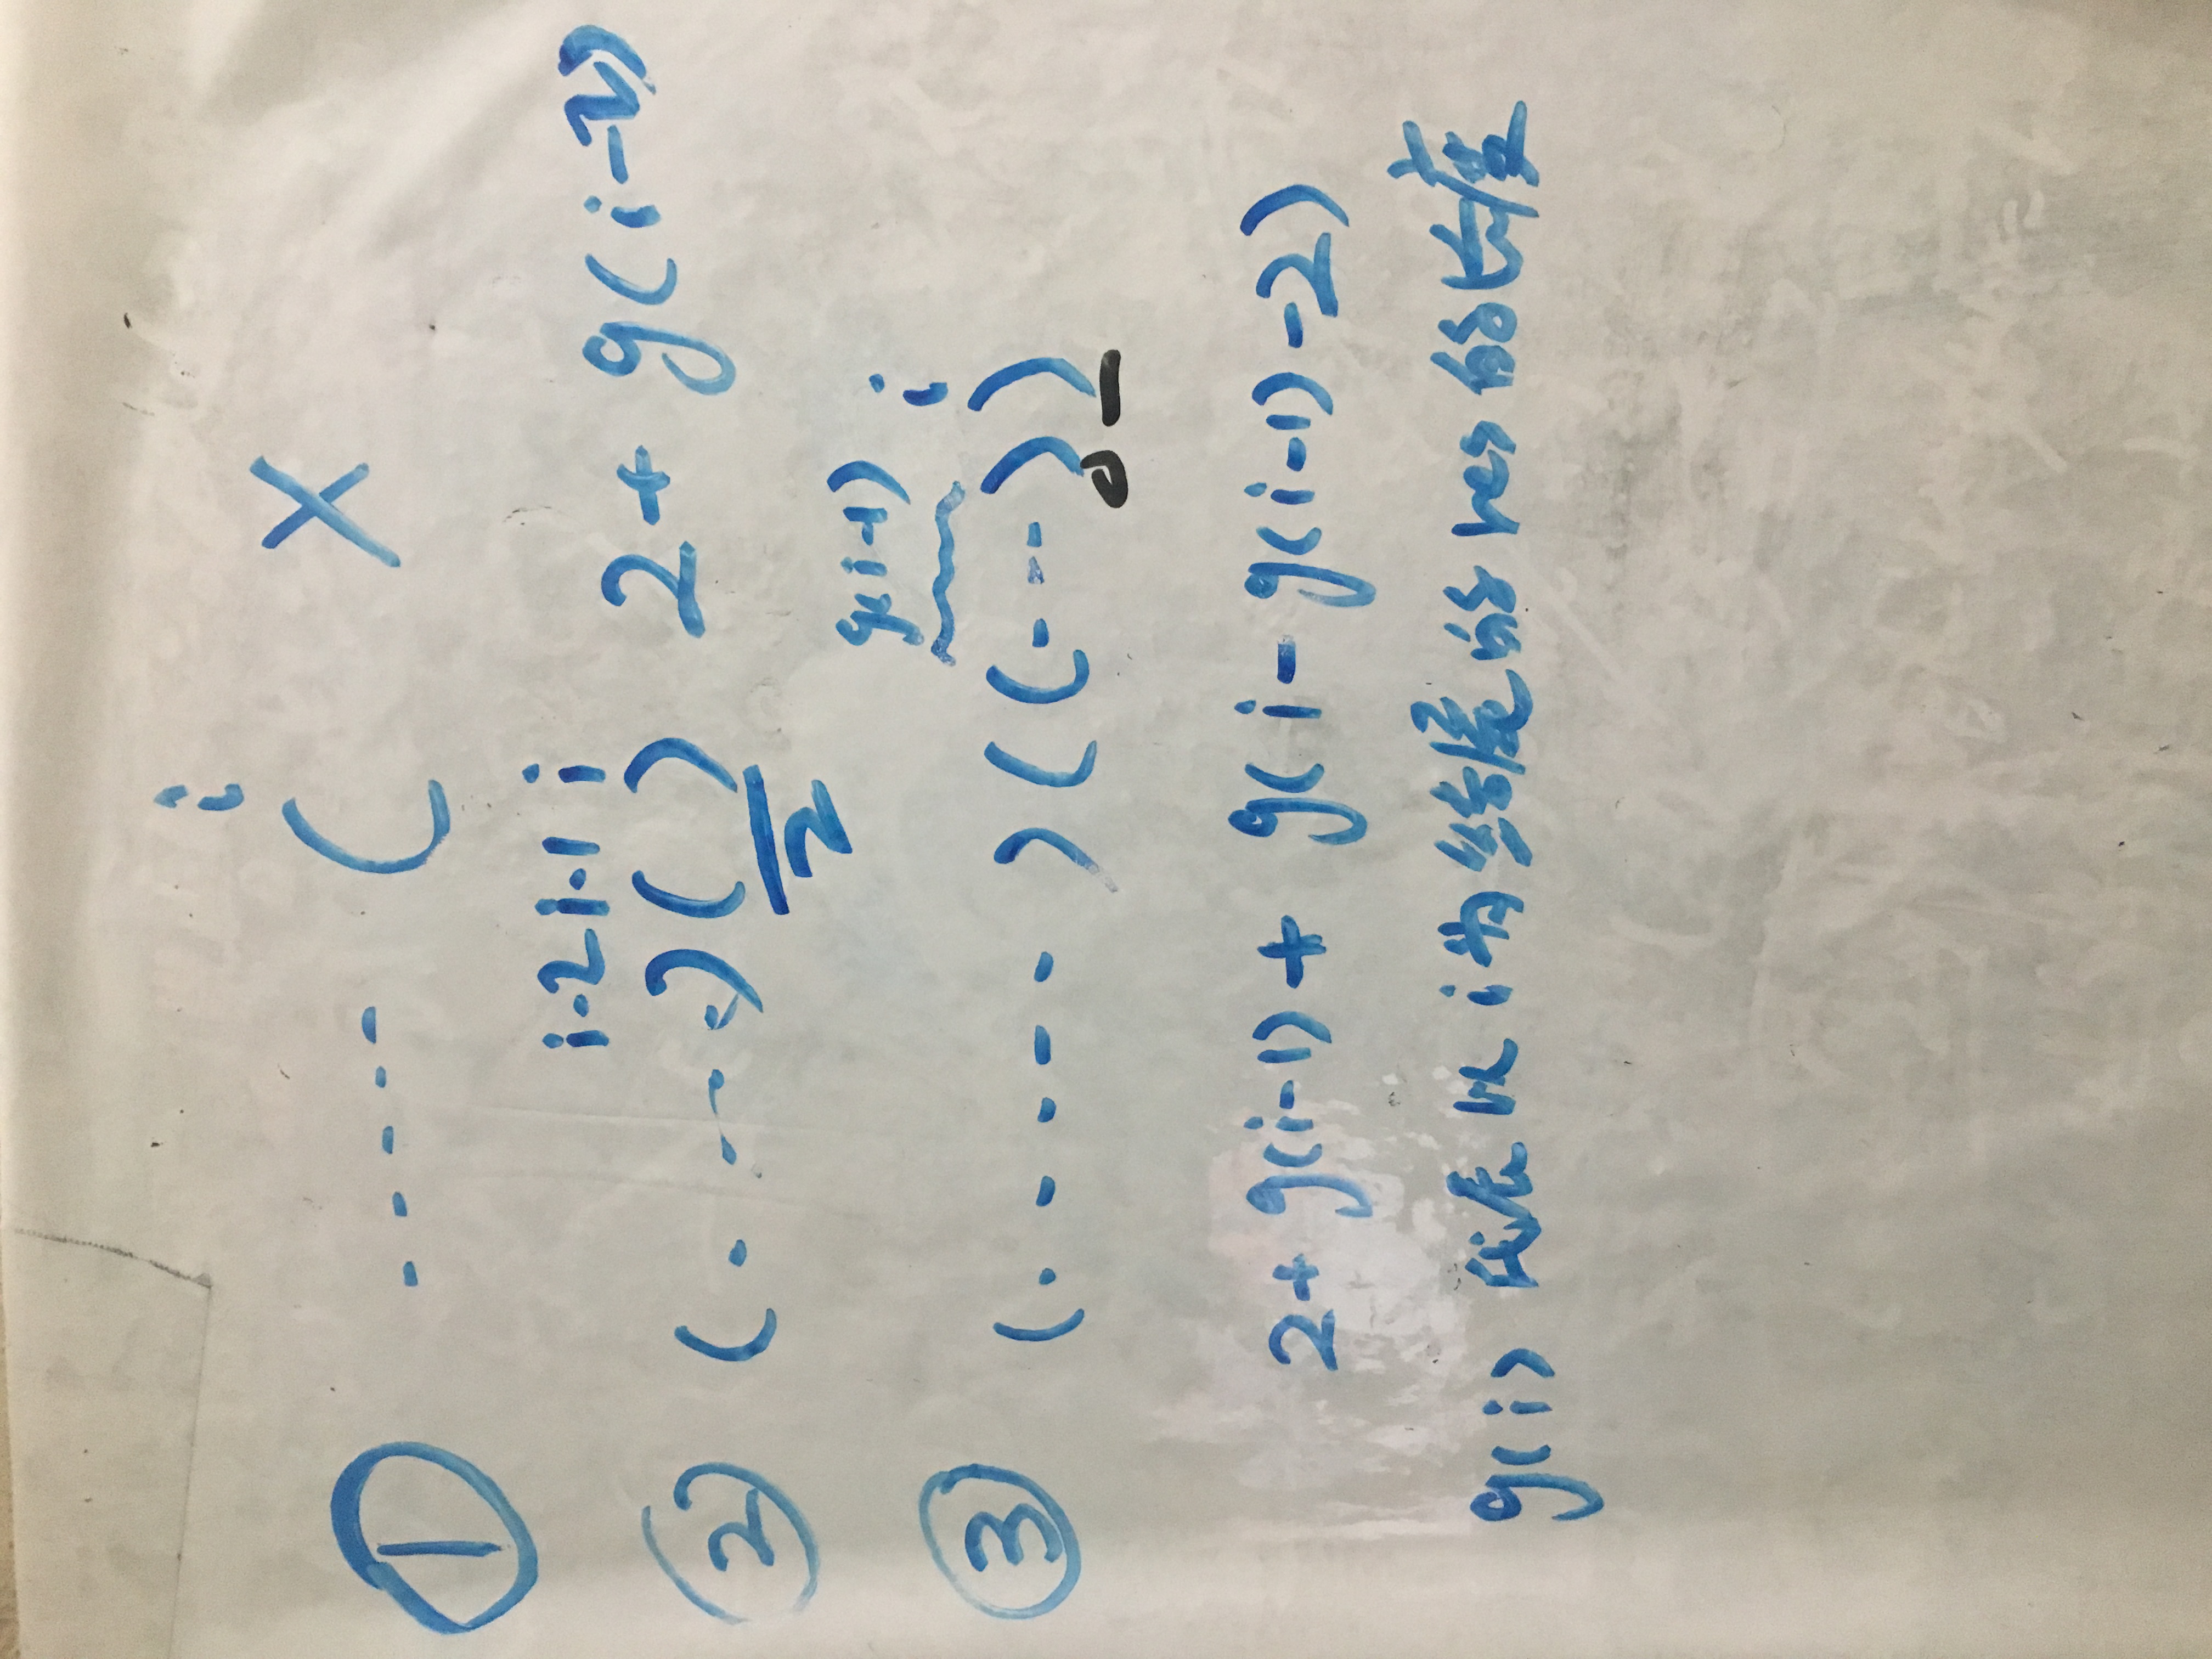 i
① ----- ( X
i-2 i-1 i
② (. ----)( ) 2 + g(i-2)
2
g(i-1) i
③ (. - - - - )((----))
2 + g(i-1) + g( i - g(i-1) - 2)
g(i) 代表以 i 为结尾的 res 的长度